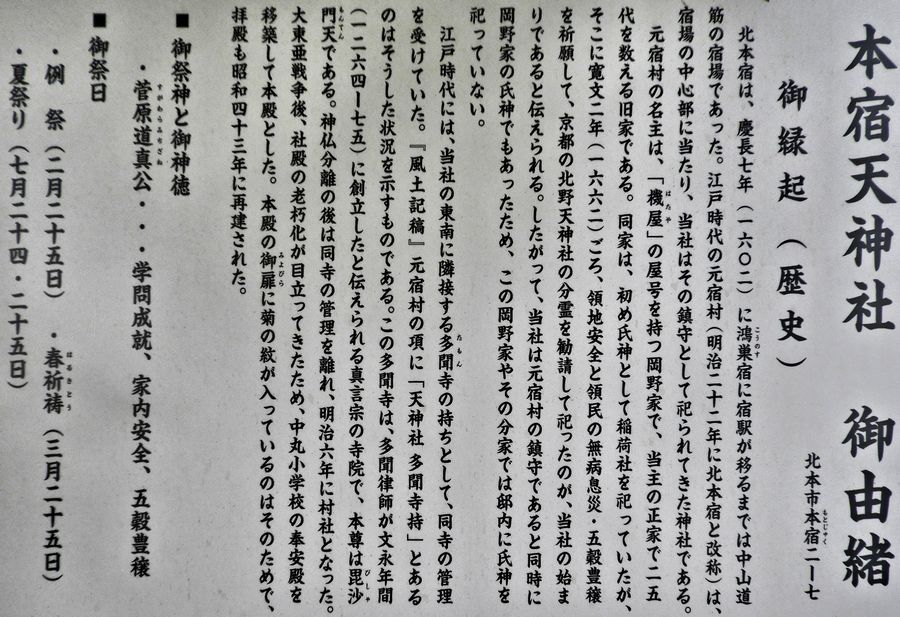 本宿天神社 御由緒
北本市本宿二ー七
もとじゅく
御縁起(歴史)
北本宿は、慶長七年(一六〇二)に鴻巣宿に宿駅が移るまでは中山道
こうのす
筋の宿場であった。江戸時代の元宿村(明治二十二年に北本宿と改称)は、
宿場の中心部に当たり、当社はその鎮守として祀られてきた神社である。
元宿村の名主は、「機屋」の屋号を持つ岡野家で、当主の正家で二五
はたや
代を数える旧家である。同家は、初め氏神として稲荷社を祀っていたが、
そこに寛文二年(一六六二)ごろ、領地安全と領民の無病息災・五穀豊穣
を祈願して、京都の北野天神社の分霊を勧請して祀ったのが、当社の始ま
りであると伝えられる。したがって、当社は元宿村の鎮守であると同時に
岡野家の氏神でもあったため、この岡野家やその分家では邸内に氏神を
祀っていない。
江戸時代には、当社の東南に隣接する多聞寺の持ちとして、同寺の管理
たもん
を受けていた。『風土記稿』元宿村の項に「天神社 多聞寺持」とある
のはそうした状況を示すものである。この多聞寺は、多聞律師が文永年間
(一二六四ー七五)に創立したと伝えられる真言宗の寺院で、本尊は毘沙
びしゃ
門天である。神仏分離の後は同寺の管理を離れ、明治六年に村社となった。
もんてん
大東亜戦争後、社殿の老朽化が目立ってきたため、中丸小学校の奉安殿を
移築して本殿とした。本殿の御扉に菊の紋が入っているのはそのためで、
みとびら
拝殿も昭和四十三年に再建された。
■ 御祭神と御神徳
・菅原道真公・・・学問成就、家内安全、五穀豊穣
すがわらみちざね
■ 御祭日
・例 祭(二月二十五日) ・春祈祷(三月二十五日)
はるきとう
・夏祭り(七月二十四・二十五日)